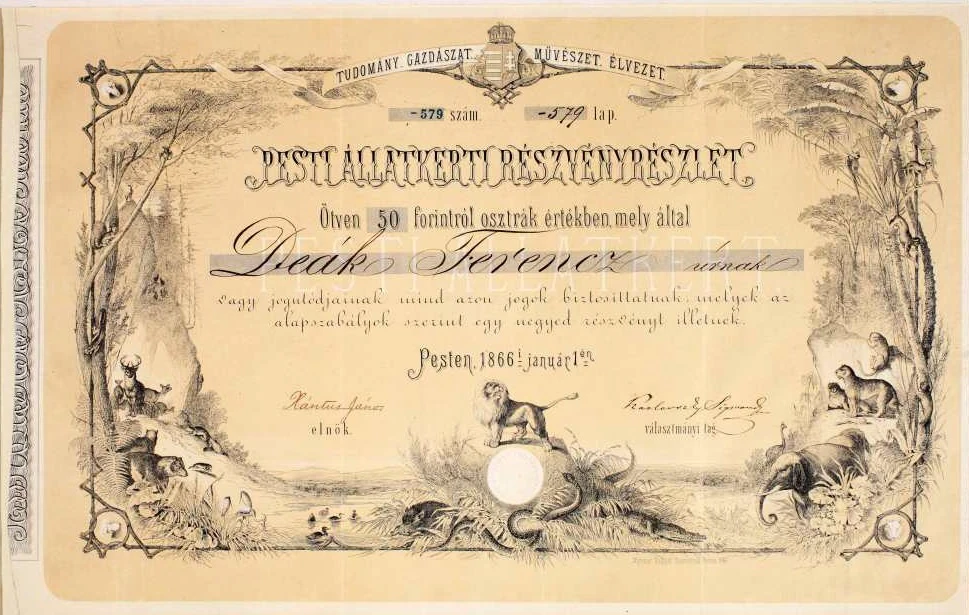 TUDOMÁNY. GAZDÁSZAT. MŰVÉSZET. ÉLVEZET.
-579 szám. -579 lap.
PESTI ÁLLATKERTI RÉSZVÉNYRÉSZLET
Ötven 50 forintról osztrák értékben, mely által
PESTI ÁLLATKERT.
Deák Ferencz úrnak
vagy jogutódjainak mind azon jogok biztosíttatnak, melyek az
alapszabályok szerint egy negyed részvényt illetnek.
Pesten, 1866 i január 1 én
Xántus János
elnök.
Zsigmond
választmányi tag